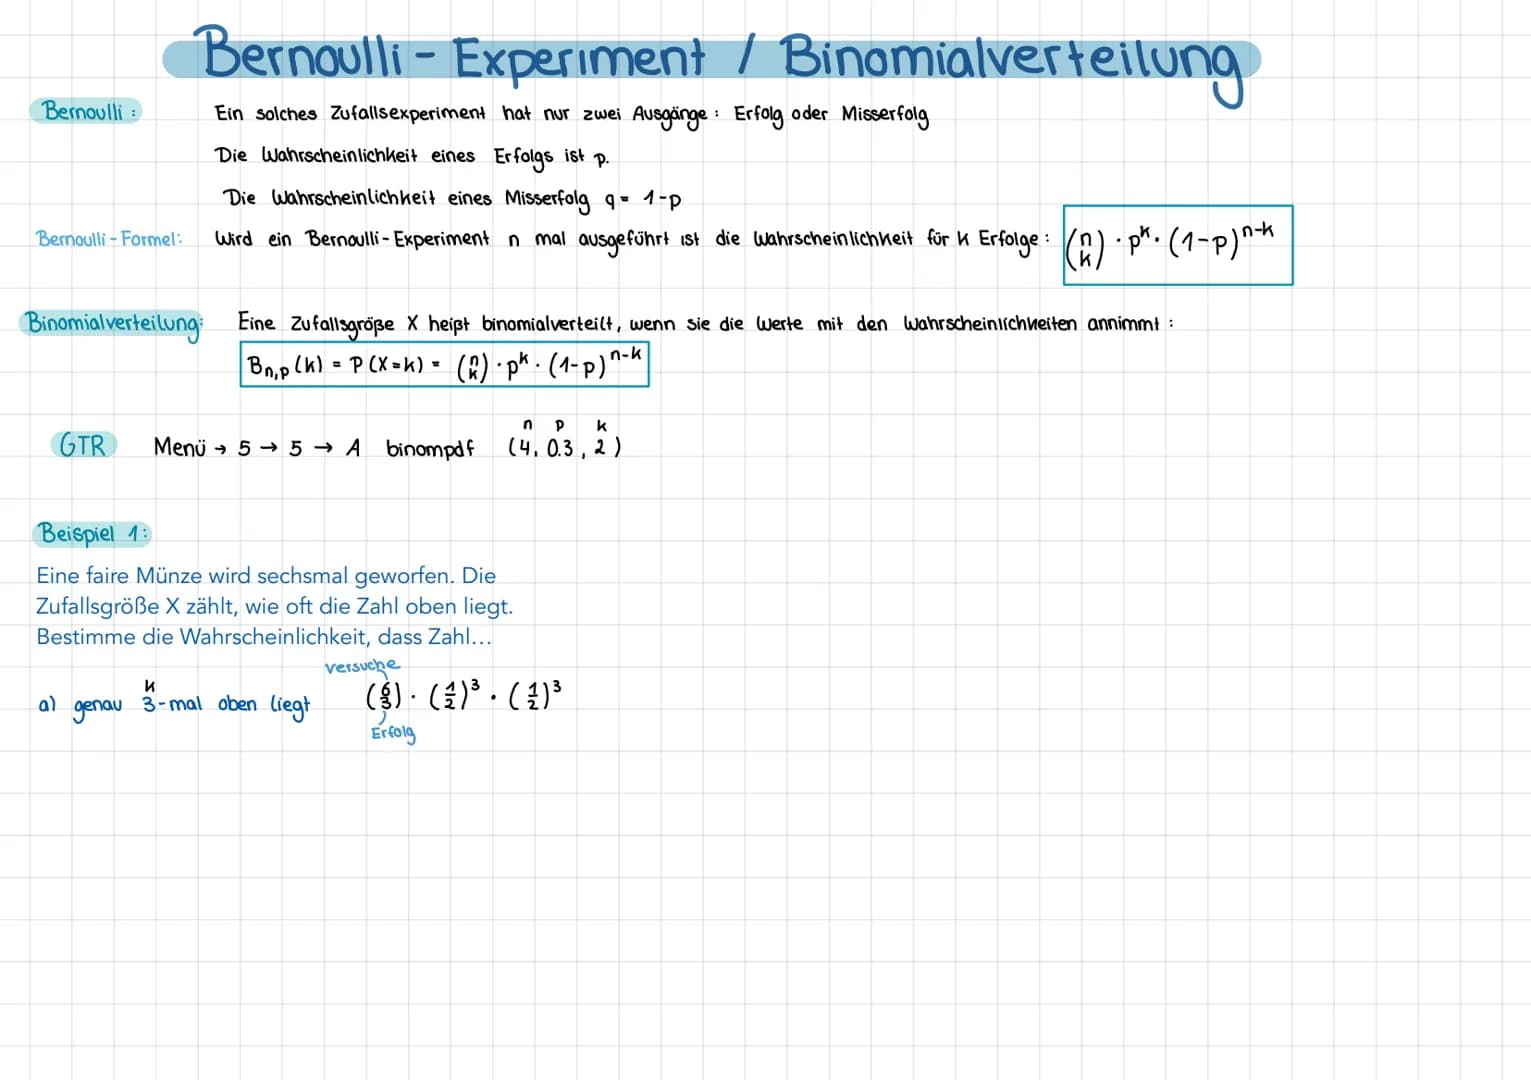 Bernoulli - Experiment / Binomialverteilung
Bernoulli : Ein solches Zufallsexperiment hat nur zwei Ausgänge : Erfolg oder Misserfolg
Die Wahrscheinlichkeit eines Erfolgs ist p.
Die Wahrscheinlichkeit eines Misserfolg q = 1-p
Bernoulli - Formel: Wird ein Bernoulli - Experiment n mal ausgeführt ist die Wahrscheinlichkeit für k Erfolge : (n k) · p^k · (1-p)^n-k
Binomialverteilung: Eine Zufallsgröße X heißt binomialverteilt, wenn sie die Werte mit den Wahrscheinlichkeiten annimmt :
B n,p (k) = P (X = k) = (n k) · p^k · (1-p)^n-k
n p k
GTR Menü → 5 → 5 → A binompdf (4, 0.3, 2)
Beispiel 1:
Eine faire Münze wird sechsmal geworfen. Die
Zufallsgröße X zählt, wie oft die Zahl oben liegt.
Bestimme die Wahrscheinlichkeit, dass Zahl...
versuche
k
a) genau 3-mal oben liegt (6 3) · (1/2)³ · (1/2)³
Erfolg